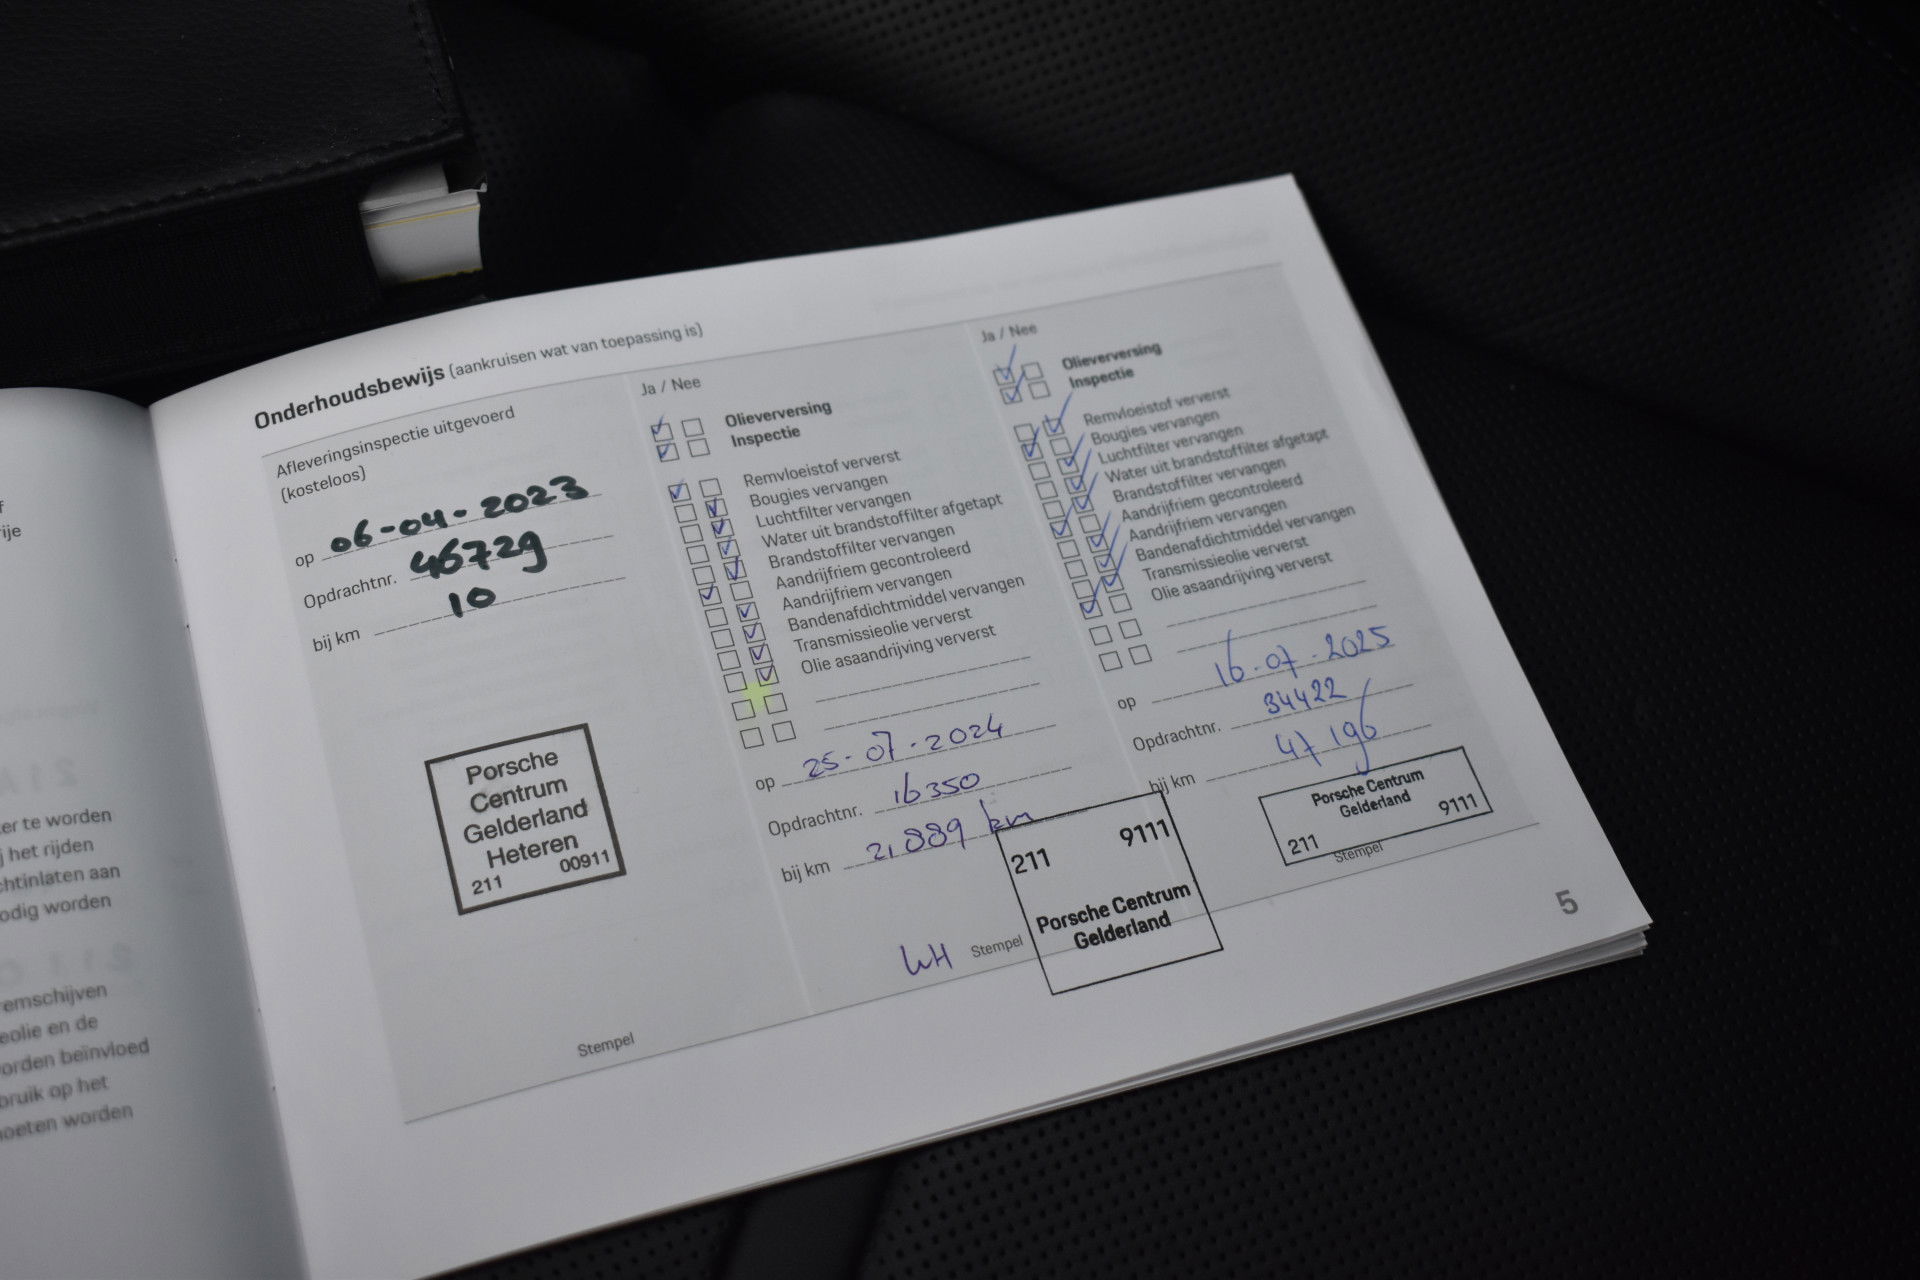 f
ije
er te worden
j het rijden
chtinlaten aan
odig worden
remschijven
eolie en de
orden beïnvloed
bruik op het
moeten worden
Onderhoudsbewijs (aankruisen wat van toepassing is)
Afleveringsinspectie uitgevoerd
(kosteloos)
op 06-04-2023
Opdrachtnr. 46729
bij km 10
Porsche
Centrum
Gelderland
Heteren
211 00911
Stempel
Ja / Nee
Olieverversing
Inspectie
Remvloeistof ververst
Bougies vervangen
Luchtfilter vervangen
Water uit brandstoffilter afgetapt
Brandstoffilter vervangen
Aandrijfriem gecontroleerd
Aandrijfriem vervangen
Bandenafdichtmiddel vervangen
Transmissieolie ververst
Olie asaandrijving ververst
op 25-07-2024
Opdrachtnr. 16350
bij km 21889 km
211 9111
Porsche Centrum
Gelderland
WH Stempel
Ja / Nee
Olieverversing
Inspectie
Remvloeistof ververst
Bougies vervangen
Luchtfilter vervangen
Water uit brandstoffilter afgetapt
Brandstoffilter vervangen
Aandrijfriem gecontroleerd
Aandrijfriem vervangen
Bandenafdichtmiddel vervangen
Transmissieolie ververst
Olie asaandrijving ververst
op 16-07-2025
Opdrachtnr. 34422
bij km 47196
Porsche Centrum
Gelderland
211 9111
Stempel
5